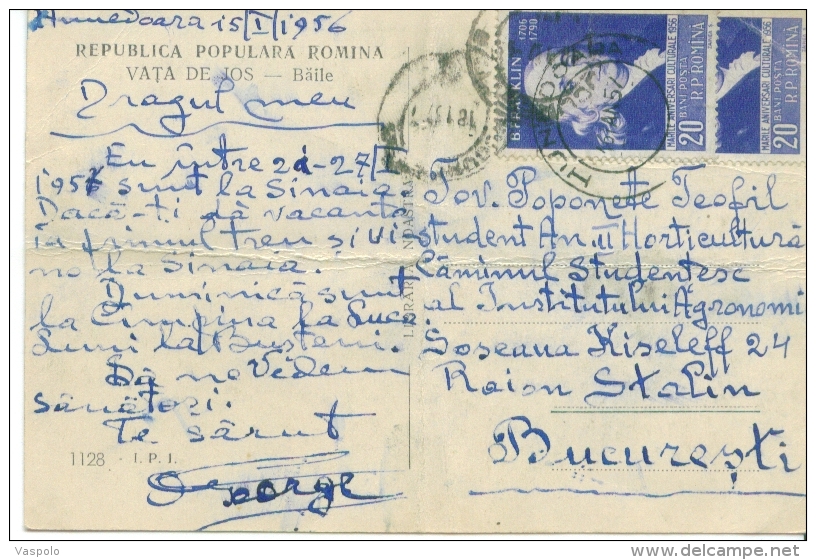 Hunedoara 15/I/1956
REPUBLICA POPULARĂ ROMÎNĂ
VAȚA DE JOS — Băile
Dragul meu
Eu între 21-27/I
1957 sunt la Sinaia.
Dacă-ți dă vacanta
ia primul tren și vi
no la Sinaia.
Duminică sunt
la Cîmpina la
Luni la Busteni.
Să ne vedem
sănătosi.
Te sărut
George
1128 - I. P. I.
LIBRĂRIA NOASTRĂ
B. FRANKLIN 1706 1790
MARILE ANIVERSARI CULTURALE 1956
20 BANI POSTA
R.P. ROMINA
MARILE ANIVERSARI CULTURALE 1956
20 BANI POSTA
R.P. ROMINA
HUNEDOARA
Tov. Poponete Teofil
student An. II Horticultură
Căminul Studentesc
al Institutului Agronomi
Soseaua Kiseleff 24
Raion Stalin
București
Vaspolo
delcampe.net